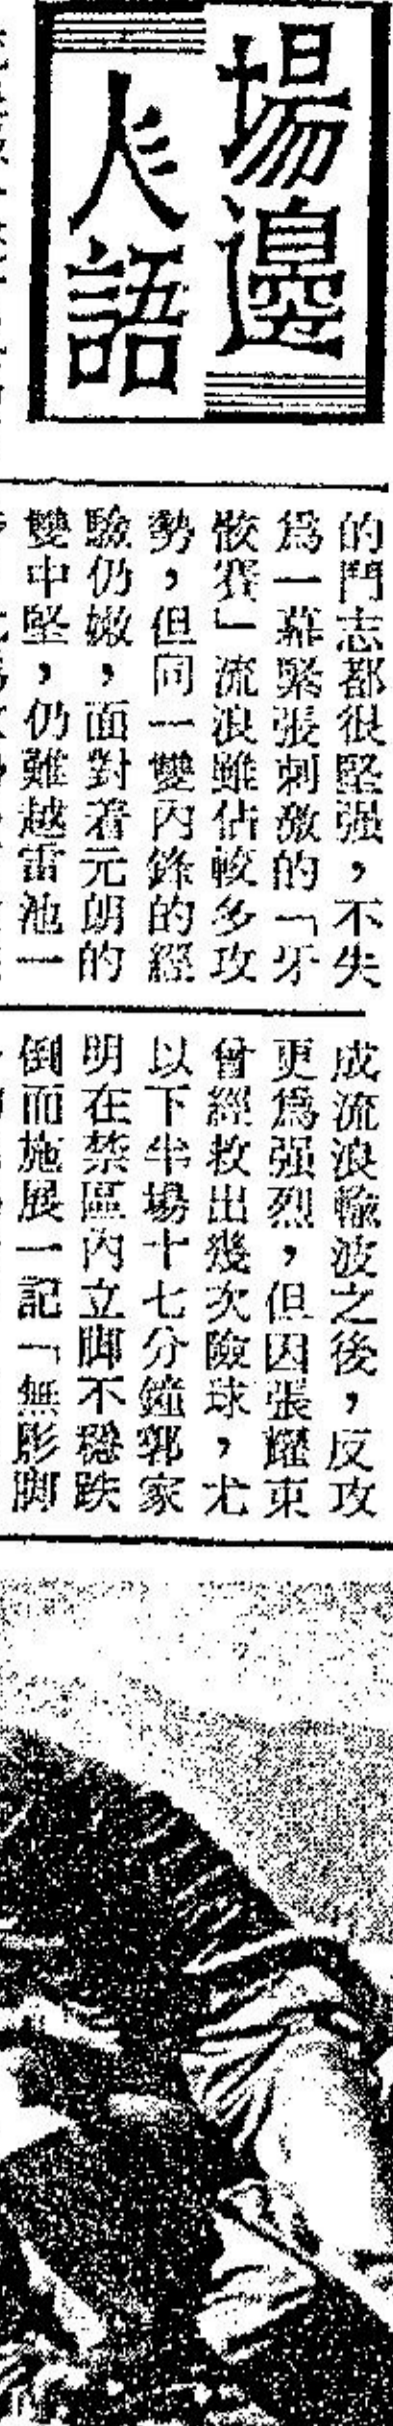 場邊
人語
的鬥志都很堅强，不失
爲一幕緊張刺激的「牙
骹賽」流浪雖佔較多攻
勢，但同一雙內鋒的經
驗仍嫩，面對着元朗的
雙中堅，仍難越雷池一
成流浪輸波之後，反攻
更爲强烈，但因張耀東
曾經救出幾次險球，尤
以下半場十七分鐘郭家
明在禁區內立脚不穩跌
倒而施展一記「無影脚